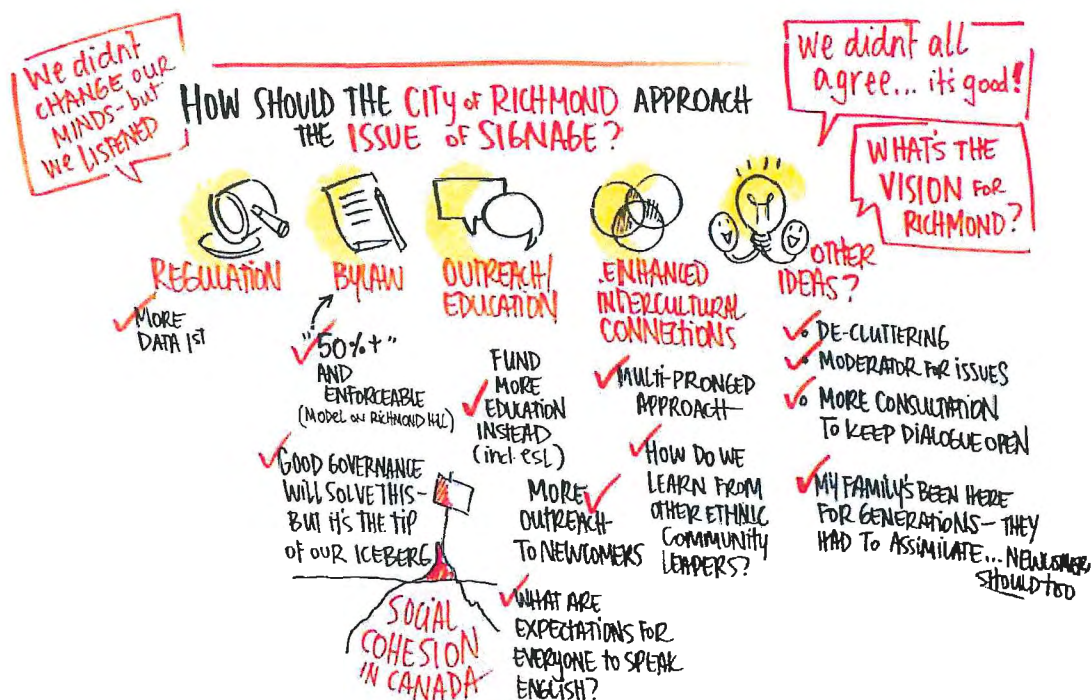 We didnt
CHANGE OUR
MINDS - but
We LISTENED
HOW SHOULD THE CITY of RICHMOND APPROACH
THE ISSUE of SIGNAGE?
We didnt all
agree... it's good!
WHAT'S THE
VISION FOR
RICHMOND?
REGULATION
MORE
DATA 1st
BYLAW
"50%+"
AND
ENFORCEABLE
(MODEL ON RICHMOND HILL)
GOOD GOVERNANCE
WILL SOLVE THIS -
BUT IT'S THE TIP
OF OUR ICEBERG
SOCIAL
COHESION
IN CANADA
OUTREACH/
EDUCATION
FUND
MORE
EDUCATION
INSTEAD
(incl. esl)
MORE
OUTREACH
TO NEWCOMERS
WHAT ARE
EXPECTATIONS FOR
EVERYONE TO SPEAK
ENGLISH?
ENHANCED
INTERCULTURAL
CONNECTIONS
MULTI-PRONGED
APPROACH
HOW DO WE
LEARN FROM
OTHER ETHNIC
COMMUNITY
LEADERS?
OTHER
IDEAS?
DE-CLUTTERING
MODERATOR FOR ISSUES
MORE CONSULTATION
TO KEEP DIALOGUE OPEN
MY FAMILY'S BEEN HERE
FOR GENERATIONS - THEY
HAD TO ASSIMILATE... NEWCOMER
SHOULD TOO